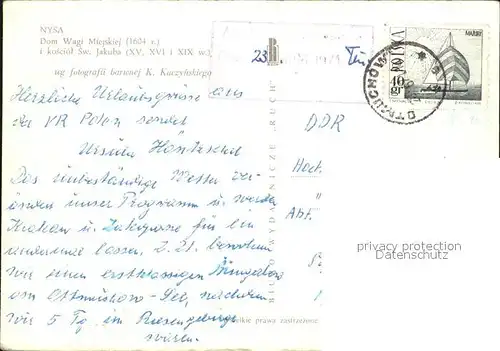 NYSA
Dom Wagi Miejskiej (1604 r.)
i kościół Św. Jakuba (XV, XVI i XIX w.)
ug fotografii barwnej K. Kaczyńskiego
23.
MARS
POLSKA
10 gr
OTMUCHÓW
Herzliche Urlaubsgrüsse aus
der VR Polen sendet
Ursula
Das unbeständige Wetter ver-
änderte unser Programm u. werden
Krakau u. Zakopane für ein
andermal lassen. Z. Zt. bewohnen
wir einen erstklassigen Bungalow
am Ottmachau-See, nachdem
wir 5 Tg. im Riesengebirge
waren.
DDR
Abt.
BIURO WYDAWNICZE „RUCH"
wszelkie prawa zastrzeżone
privacy protection
Datenschutz